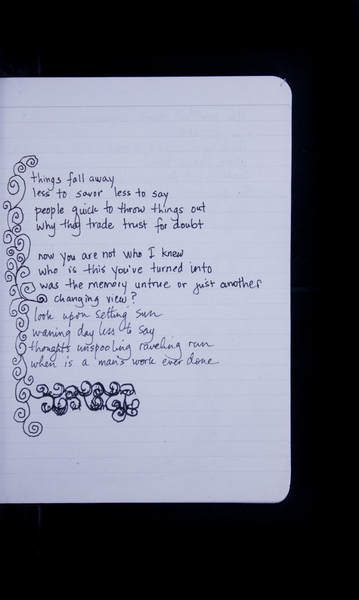 things fall away
less to savor less to say
people quick to throw things out
why they trade trust for doubt
now you are not who I knew
who is this you've turned into
was the memory untrue or just another
changing view?
look upon setting sun
waning day less to say
thoughts unspooling raveling run
when is a man's work ever done